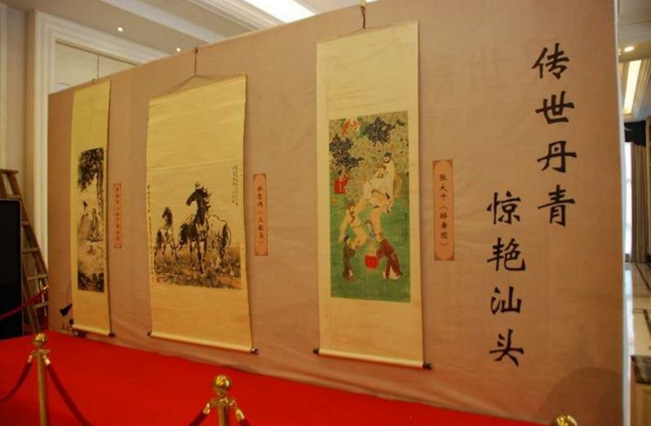 传世丹青
惊艳汕头
张大千《醉舞图》
徐悲鸿《三骏马》